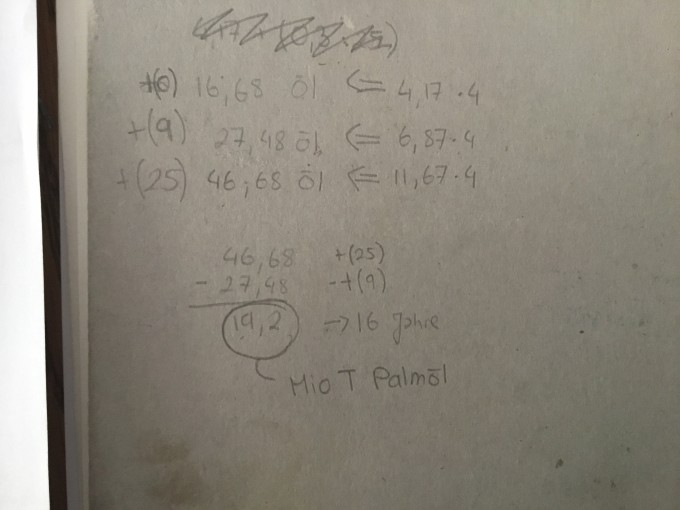 t(0) 16,68 Öl <= 4,17·4
t(9) 27,48 Öl <= 6,87·4
t(25) 46,68 Öl <= 11,67·4
46,68 t(25)
- 27,48 -t(9)
19,2 -> 16 Jahre
Mio T Palmöl